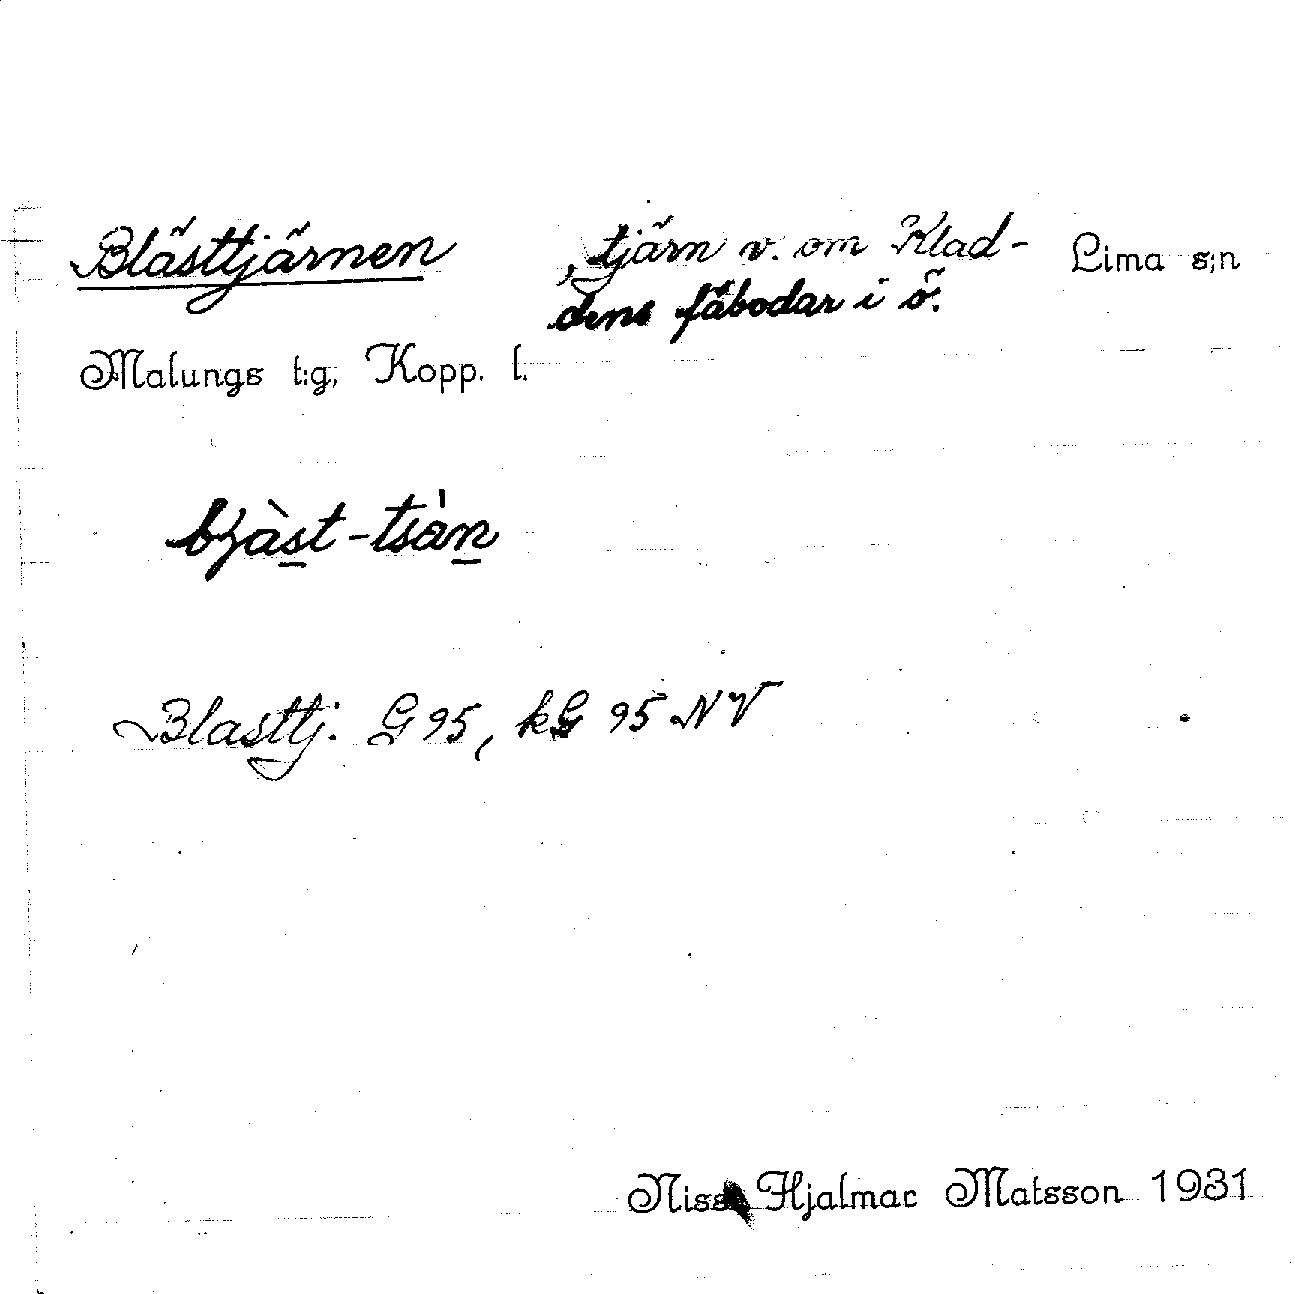 Blästtjärnen , tjärn v. om Klad- Lima s:n
dens fäbodar i ö.
Malungs t:g, Kopp. l.
bʒàst-tsàn
Blasttj. G 95, kG 95 NV
Niss Hjalmar Matsson 1931